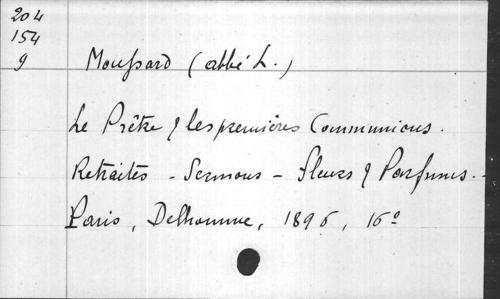 204
154
9
Moussard (abbé L.)
Le Prêtre & les premières Communions.
Retraites - Sermons - Fleurs & Parfums. -
Paris, Delhomme, 1896, 16°